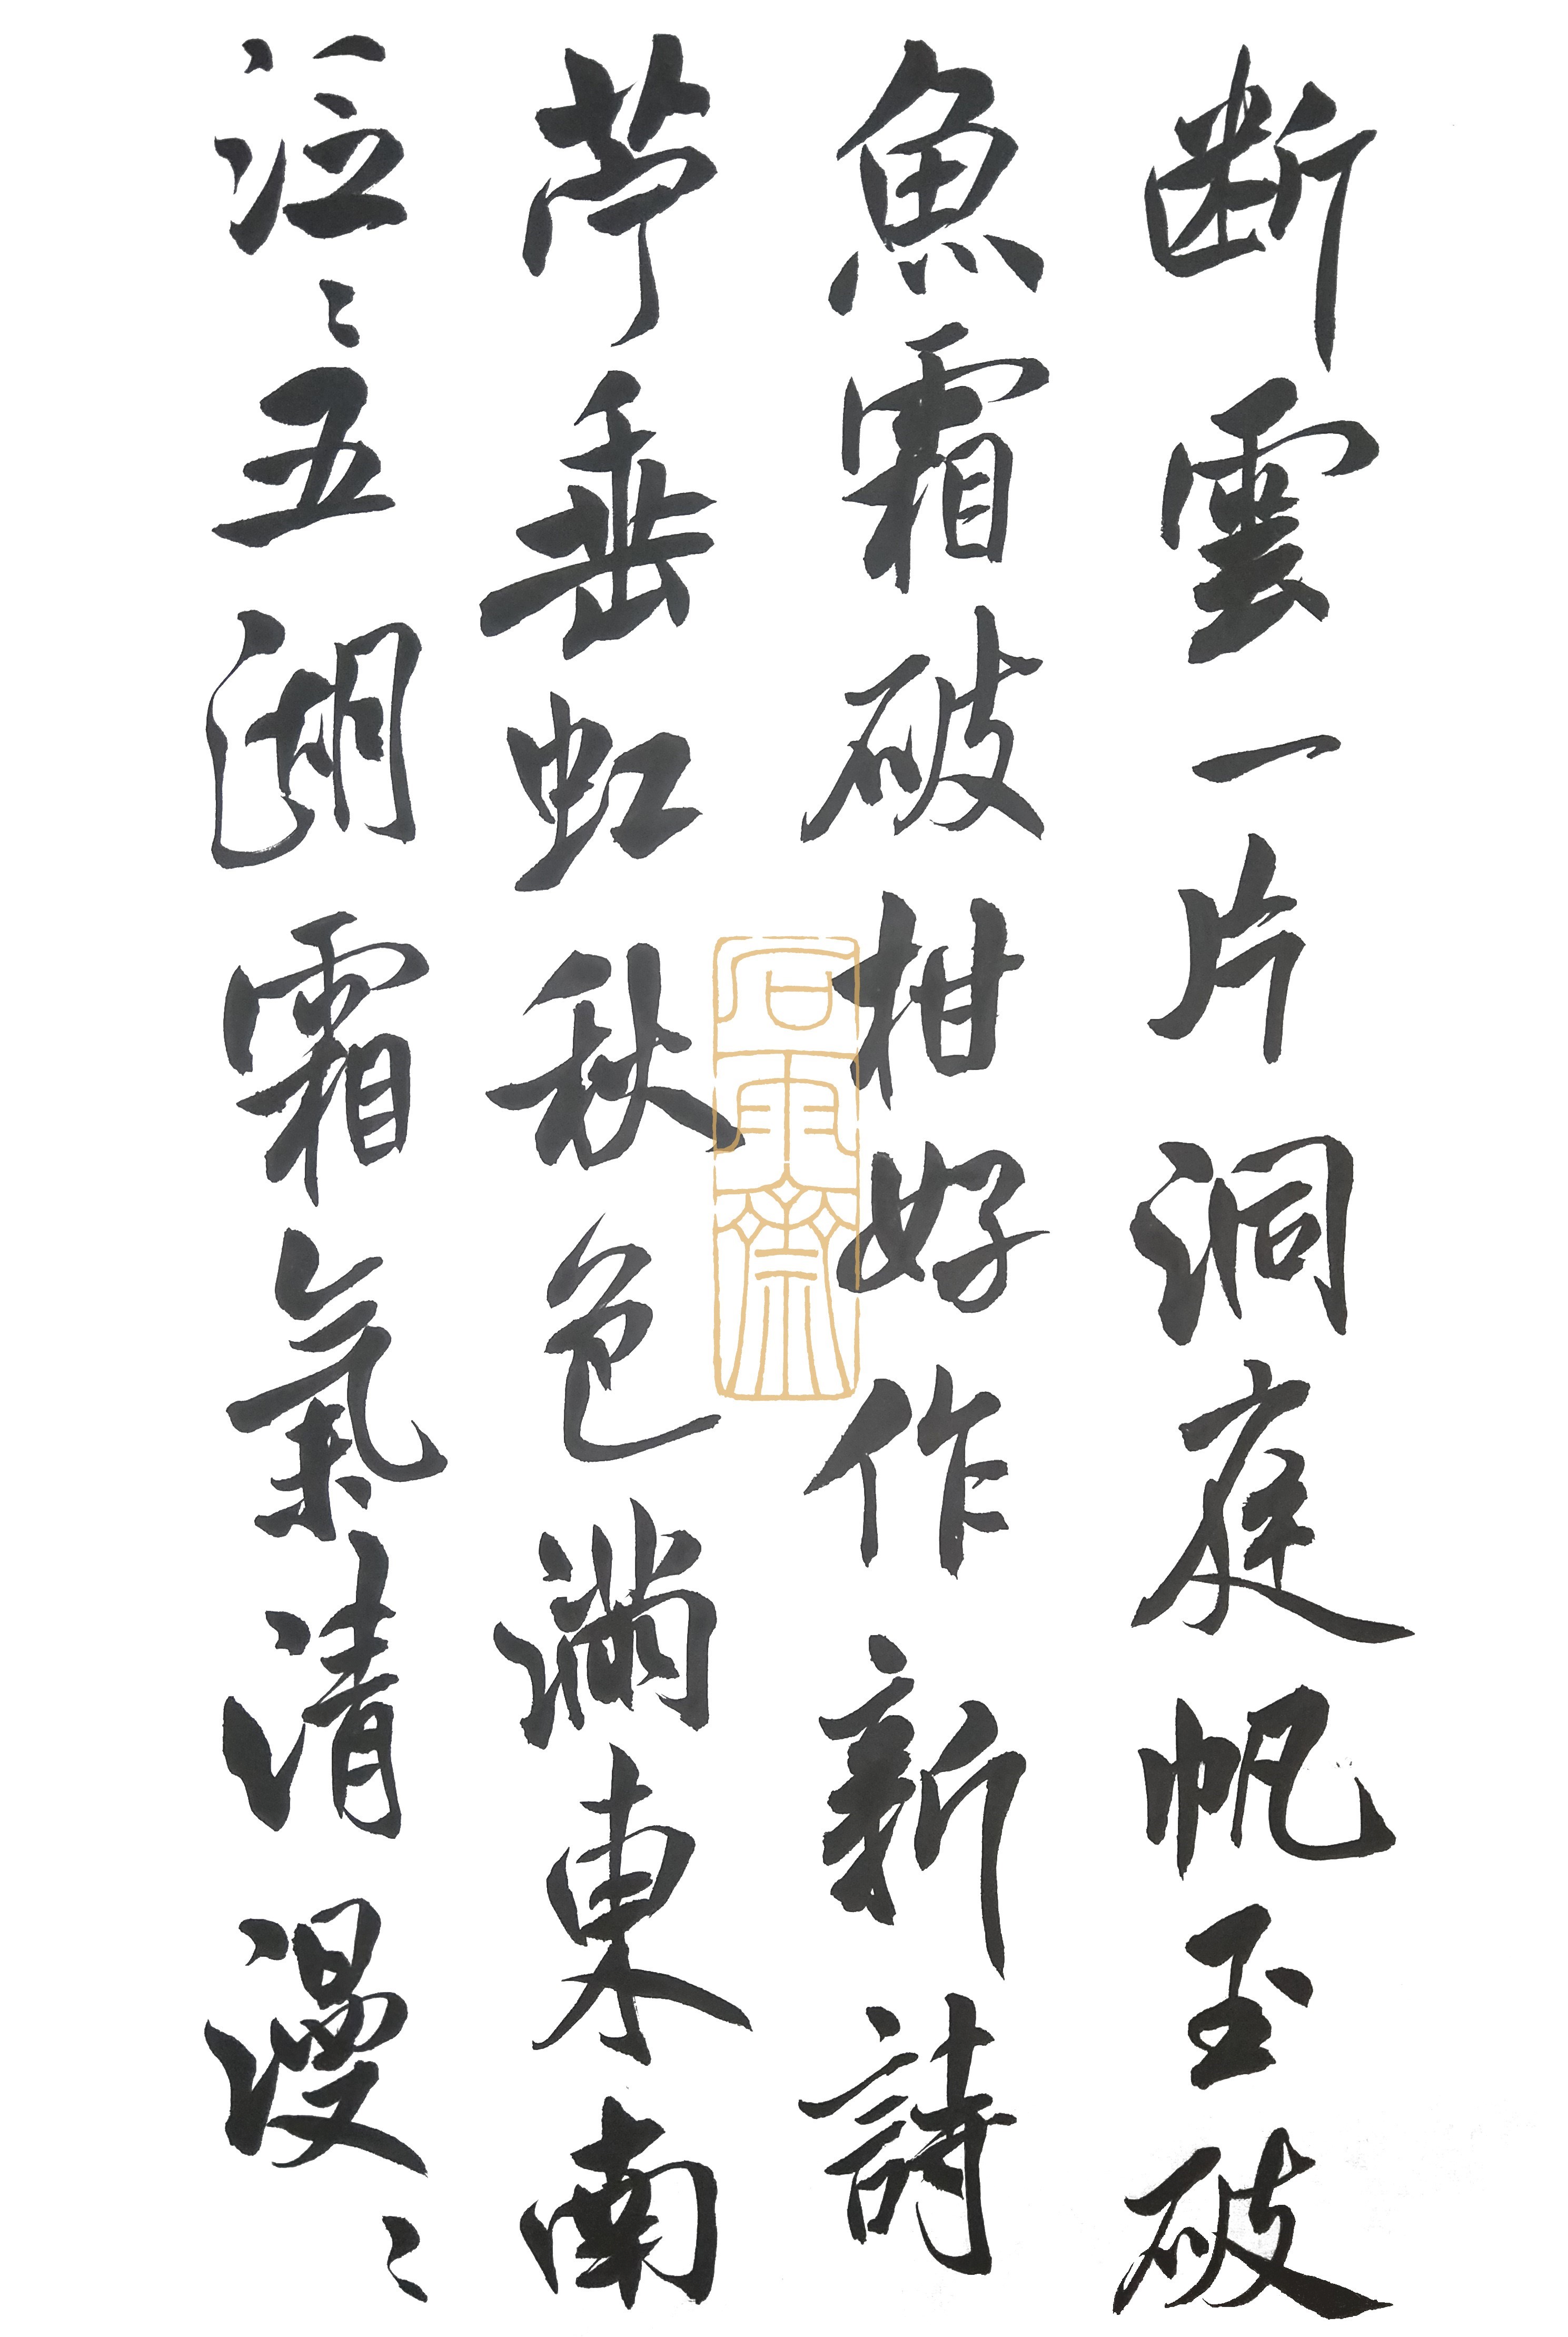 断雲一片洞庭帆玉破
魚霜破柑好作新詩
苧垂虹秋色滿東南
泛〻五湖霜氣清漫〻